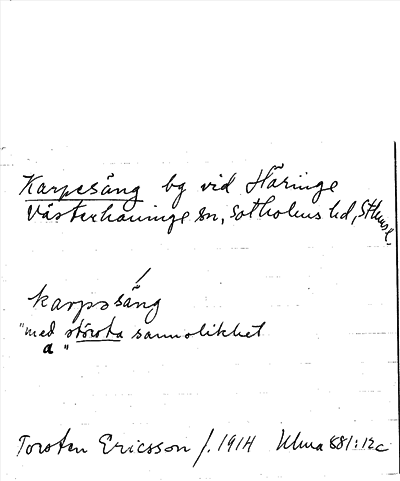 Karpesäng bg vid Häringe
Västerhaninge sn, Sotholms hd, Sthms l.
karpssäng
"med största sannolikhet
a"
Torsten Ericsson f. 1914 Ulma 881:12c